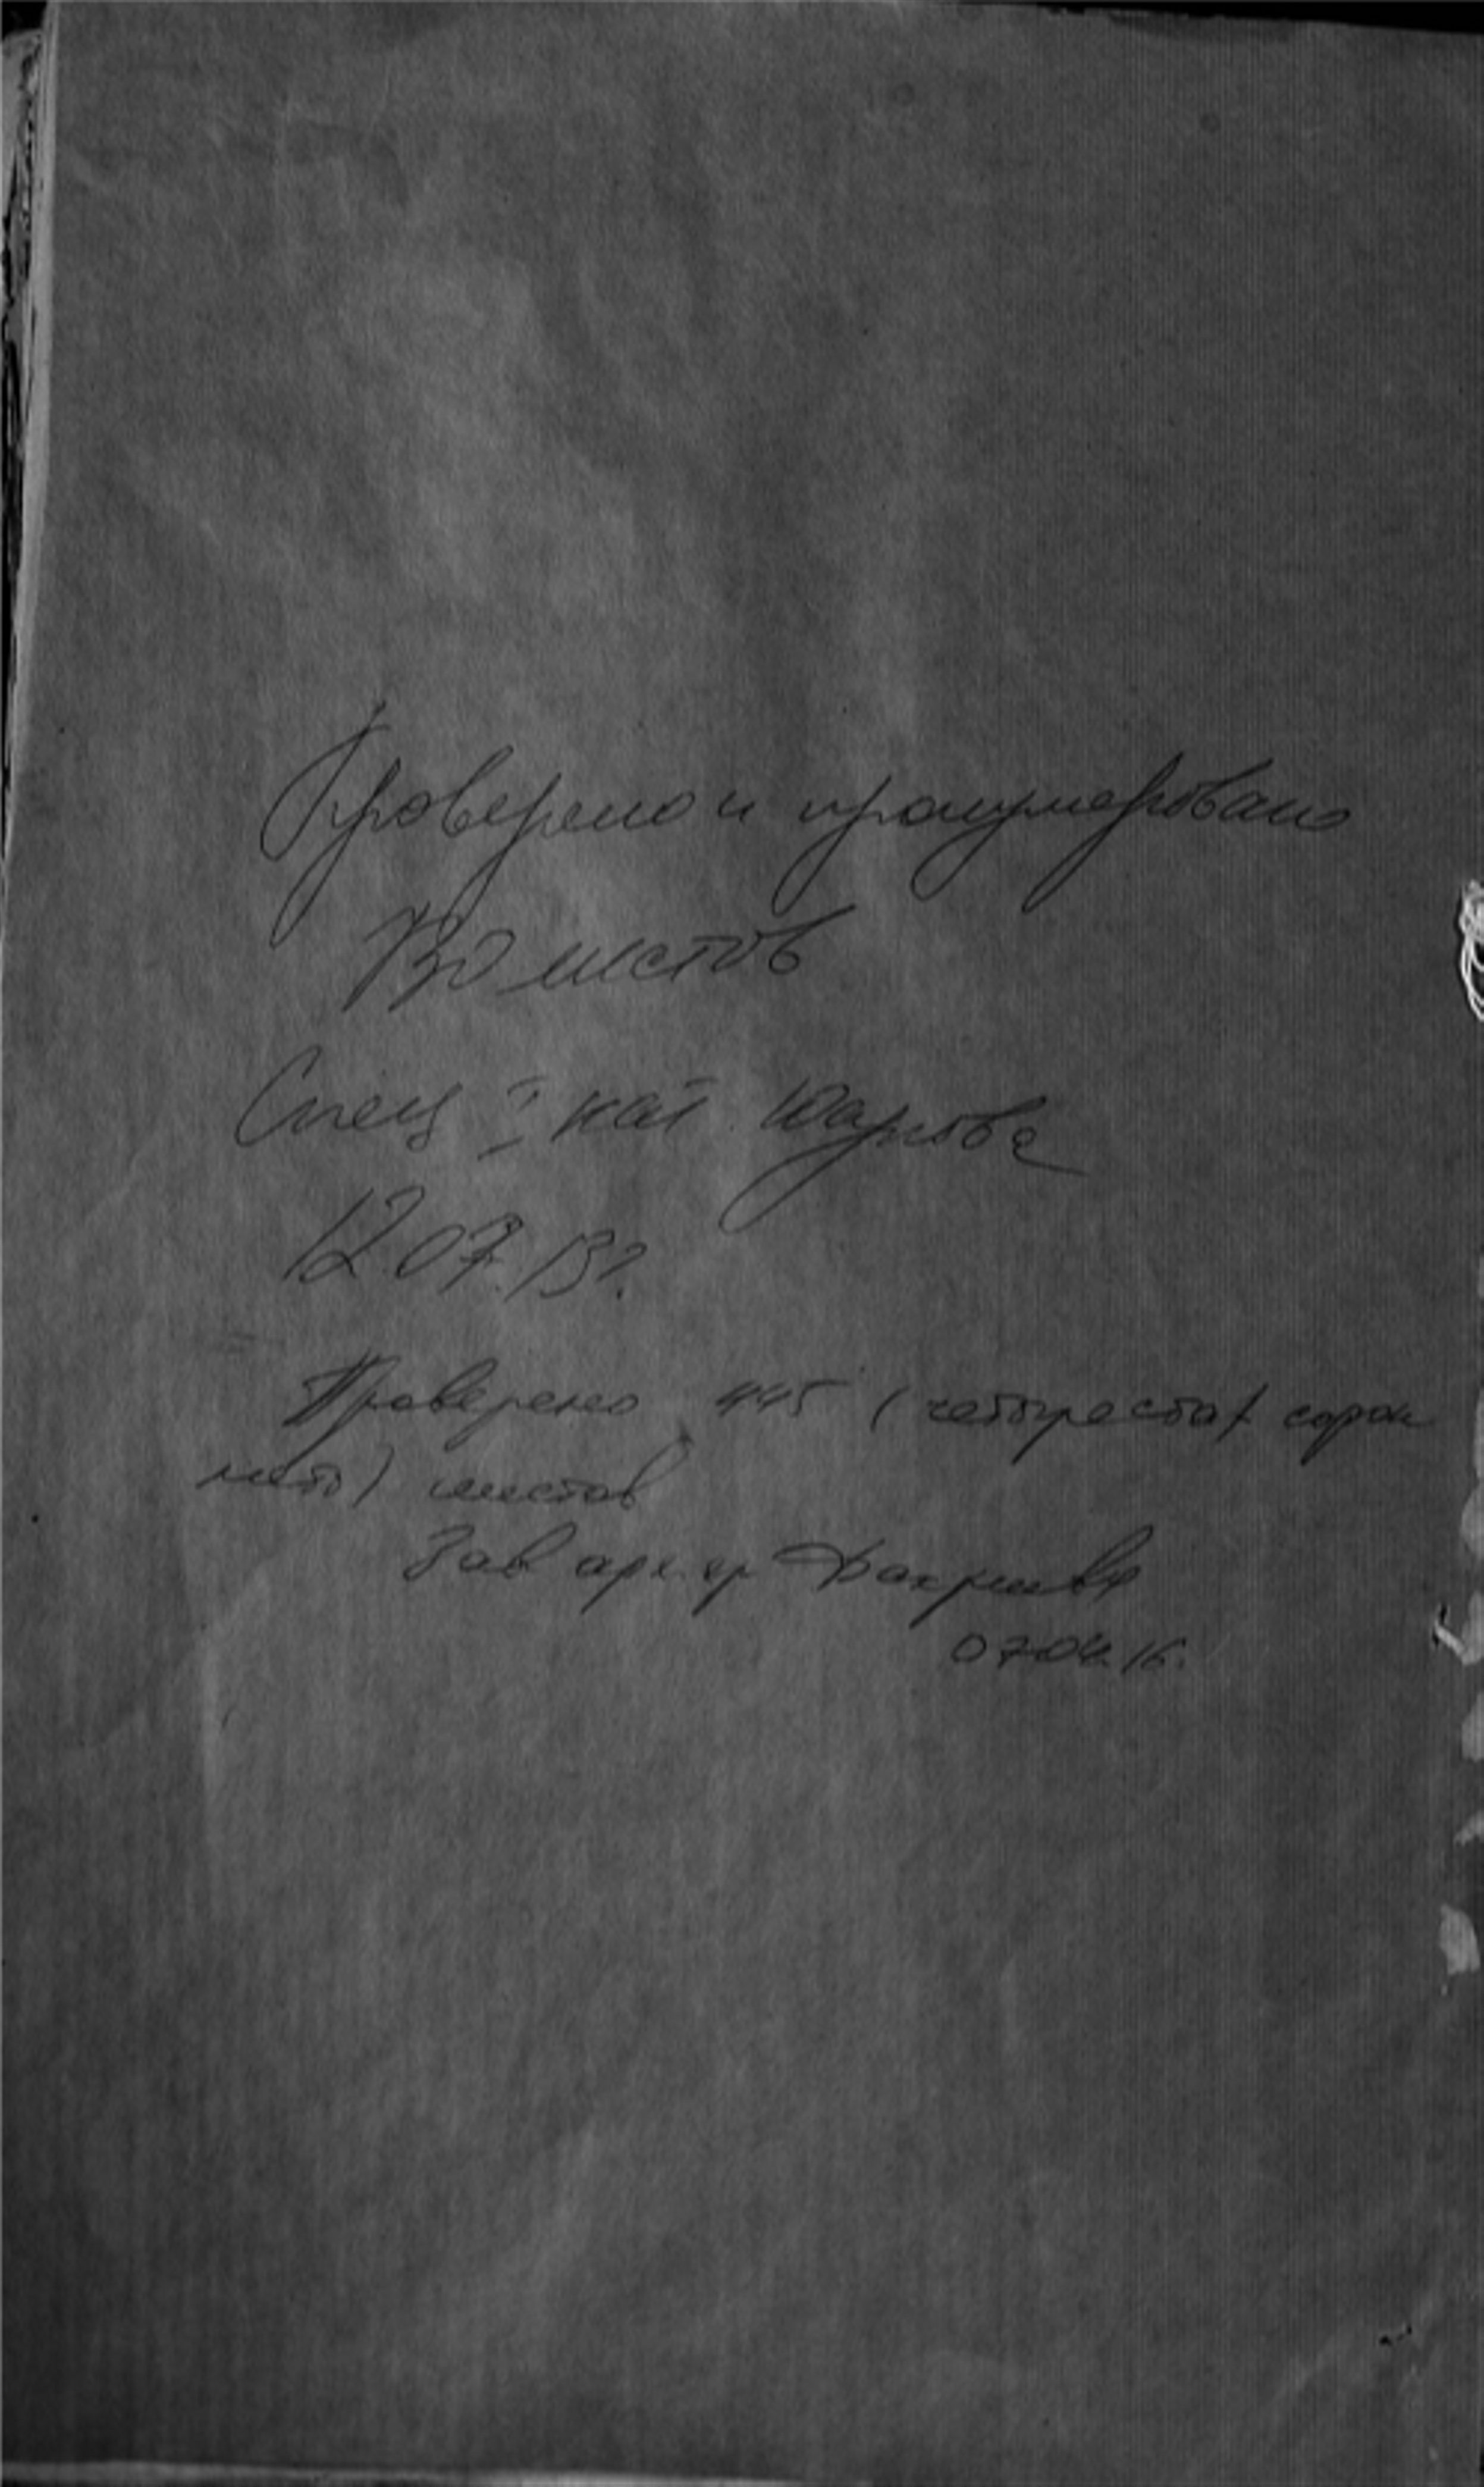 Проверено и пронумеровано
листов
Спец I кат.
12.07.13г.
Проверено 445 (четыреста сорок
пять) листов
Зав арх.
07.04.16.